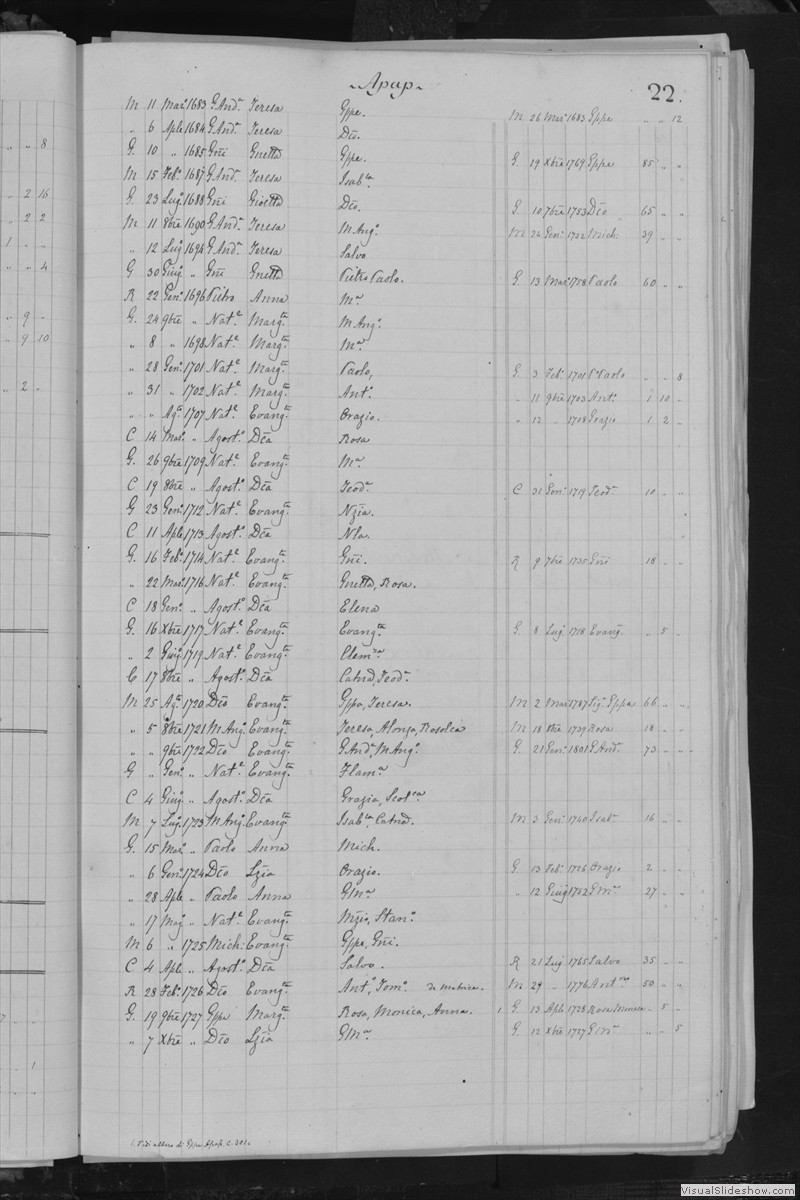 Apap
22.
M 11 Mar. 1683 G And. Teresa Gppe. M 26 Mar. 1683 Gppe " " 12
" 6 Aple 1684 G And. Teresa Dto.
G. 10 " 1685 Gñi Gnetta Gppe. G. 19 Xbre 1769 Gppe 85 " "
M 15 Feb. 1687 G And. Teresa Isab.la
G. 23 Lug. 1688 Gñi Gioetta Dto. G. 10 7bre 1753 Dto 65 " "
M 11 8bre 1690 G And. Teresa M Ang. M 26 Gen. 1732 Mich. 39 " "
" 12 Lug. 1694 G And. Teresa Salvo
G 30 Giug. " Gñi Gnetta Pietro Paolo. G. 13 Mar. 1758 Paolo 60 " "
R 22 Gen. 1696 Pietro Anna M.a
G. 24 9bre " Nat.e Marg.ta M Ang.
" 8 " 1698 Nat.e Marg.ta M.a
" 28 Gen. 1701 Nat.e Marg.ta Paolo, G. 3 Feb. 1701 P. Paolo " " 8
" 31 " 1702 Nat.e Marg.ta Ant.o " 11 9bre 1703 Ant.o 1 10 "
" " Ag. 1707 Nat.e Evang.ta Orazio. " 12 " 1708 Grazio 1 2 "
C 14 Mar. " Agost.o Dta Rosa
G. 26 9bre 1709 Nat.e Evang.ta M.a
C 19 8bre " Agost.o Dta Teod.a C 31 Gen. 1719 Teod.a 10 " "
G 23 Gen. 1712 Nat.e Evang.ta Nzia.
C 11 Aple 1713 Agost.o Dta Nla.
G. 16 Feb. 1714 Nat.e Evang.ta Gñi. R 9 7bre 1735 Gñi 18 " "
" 22 Mar. 1716 Nat.e Evang.ta Gnetta, Rosa.
C 18 Gen. " Agost.o Dta Elena
G. 16 Xbre 1717 Nat.e Evang.ta Evang.ta G. 8 Lug. 1718 Evang. " 5 "
" 2 Giug. 1719 Nat.e Evang.ta Clem.za
C 17 8bre " Agost.o Dta Catna, Teod.a
M 25 Ag. 1720 Dto Evang.ta Gppa, Teresa. M 2 Mar. 1787 Gppa 66 " "
" 5 8bre 1721 M Ang. Evang.ta Teresa, Alonza, Rosolea M 18 8bre 1739 Rosa 18 " "
" " 9bre 1722 Dto Evang.ta G And. M Ang. G. 21 Gen. 1801 G And. 73 " "
G " Gen. " Nat.e Evang.ta Flam.a
C 4 Giug. " Agost.o Dta Grazia, Scol.ca
M 7 Lug. 1723 M Ang. Evang.ta Isab.la, Catna. M 3 Gen. 1740 Isab.la 16 " "
G. 15 Mar. " Paolo Anna Mich.
" 6 Gen. 1724 Dto Lzia Orazio. G. 13 Feb. 1726 Orazio 2 " "
" 28 Aple " Paolo Anna GM.a " 12 Giug. 1752 GM.a 27 " "
" 17 Mag. " Nat.e Evang.ta Mzio, Stan.o
M 6 " 1725 Mich. Evang.ta Gppa, Gñi.
C 4 Apl. " Agost.o Dta Salvo. R 21 Lug. 1765 Salvo 35 " "
R 28 Feb. 1726 Dto Evang.ta Ant.o, Tom.o da Matrice. M 29 " 1776 Ant.no 50 " "
G. 19 9bre 1727 Gppe Marg.ta Rosa, Monica, Anna. 1 G. 13 Aple 1728 Rosa Monica " 5 "
" 7 Xbre " Dto Lzia GM.a G. 12 Xbre 1727 GM.a " " 5
1. Vidi albero di Gppe Apap C. 301.
8
2 16
2 2
1
4
9
9 10
2
1
VisualSlideshow.com